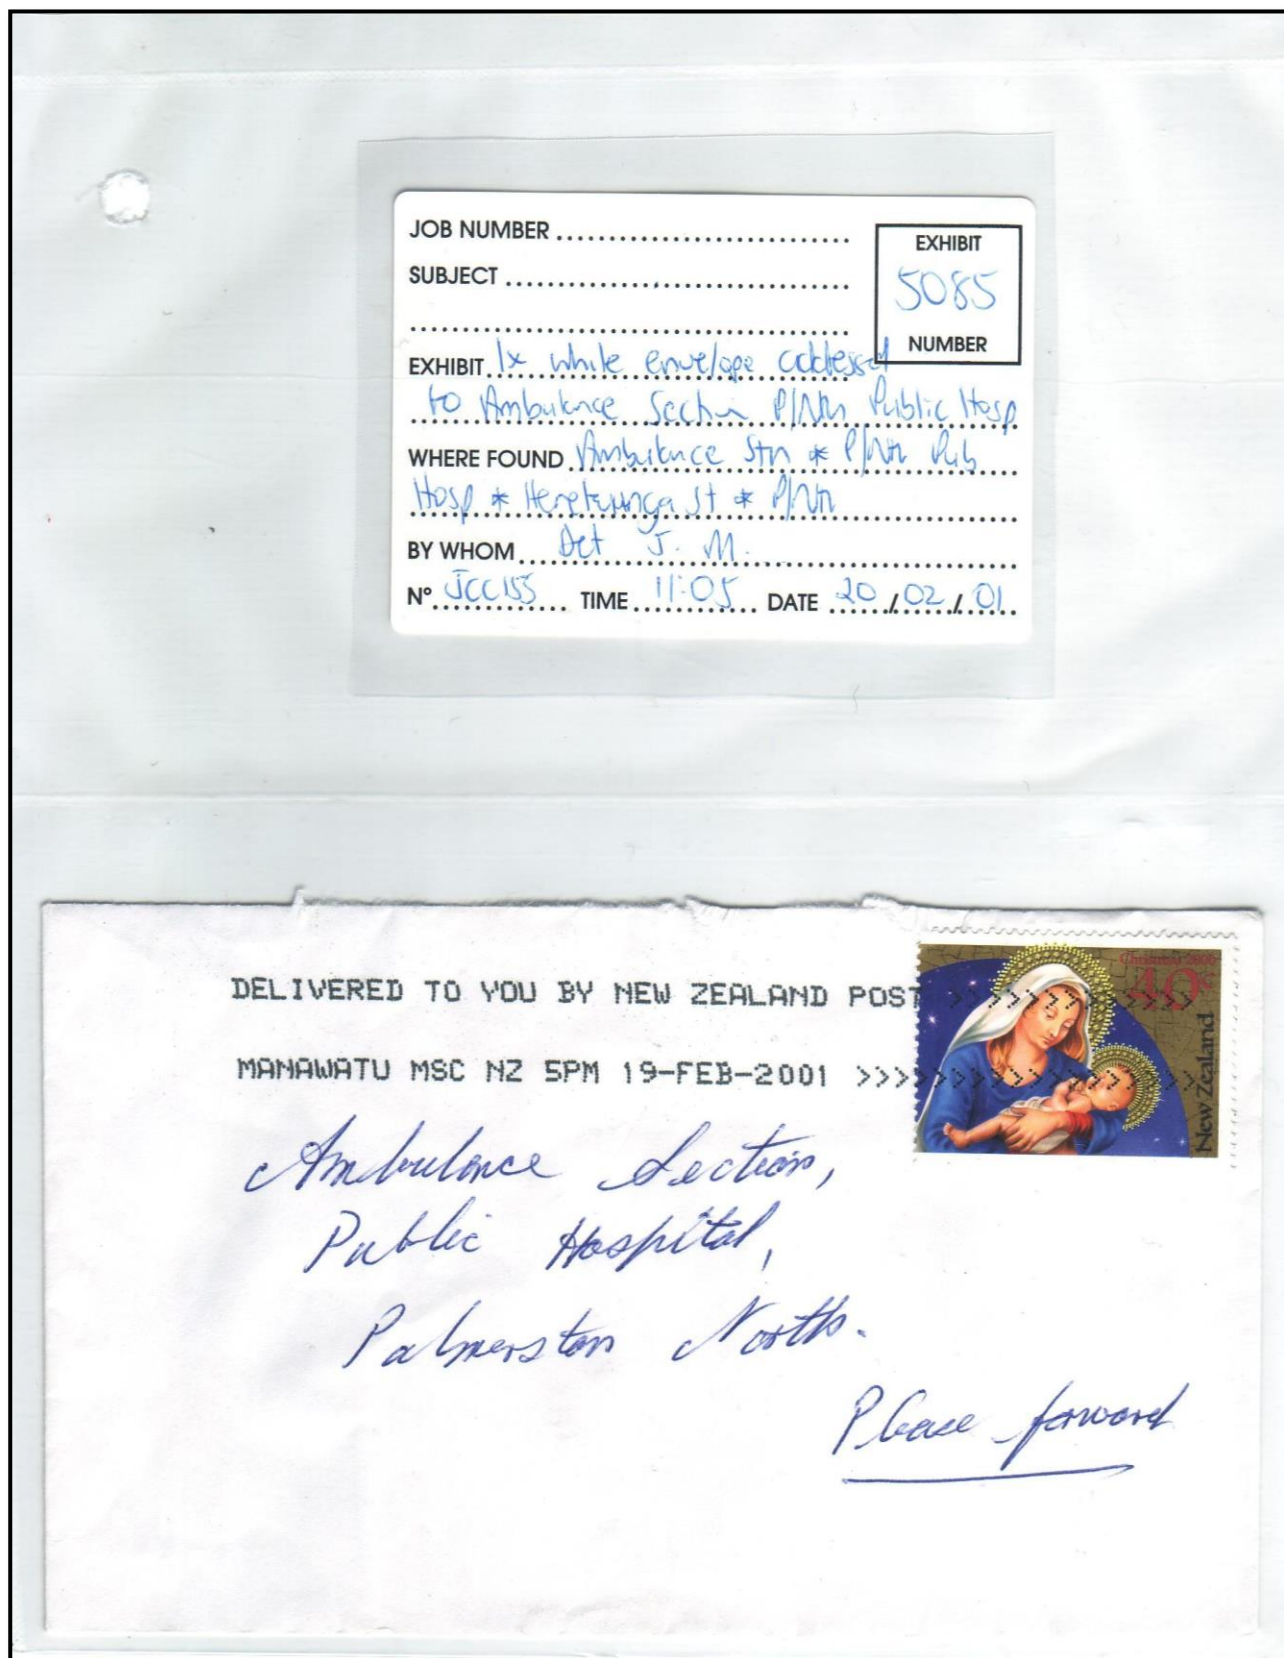 JOB NUMBER
EXHIBIT
5085
NUMBER
SUBJECT
EXHIBIT 1x white envelope addressed
to Ambulance Section P/Nth Public Hosp
WHERE FOUND Ambulance Stn * P/Nth Pub
Hosp * Heretaunga St * P/Nth
BY WHOM Det J. M.
N° JCC155 TIME 11:05 DATE 20/02/01
DELIVERED TO YOU BY NEW ZEALAND POST >>>>>>>>>>>>>
MANAWATU MSC NZ 5PM 19-FEB-2001 >>>>>>>>>>>>>>>>>
Christmas 2000
40c
New Zealand
Ambulance Section,
Public Hospital,
Palmerston North.
Please forward